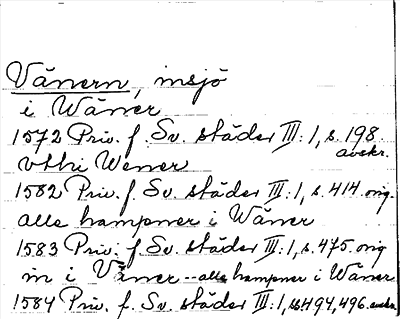 Vänern, insjö
i Wäner
1572 Priv. f. Sv. städer III: 1, s. 198.
avskr.
vthi Wener
1582 Priv. f. Sv. städer III: 1, s. 414. orig.
alle hampner i Wäner
1583 Priv. f. Sv. städer III: 1, s. 475. orig
in i Väner -- alle hampner i Wäner
1584 Priv. f. Sv. städer III: 1, ss 494, 496. avskr.